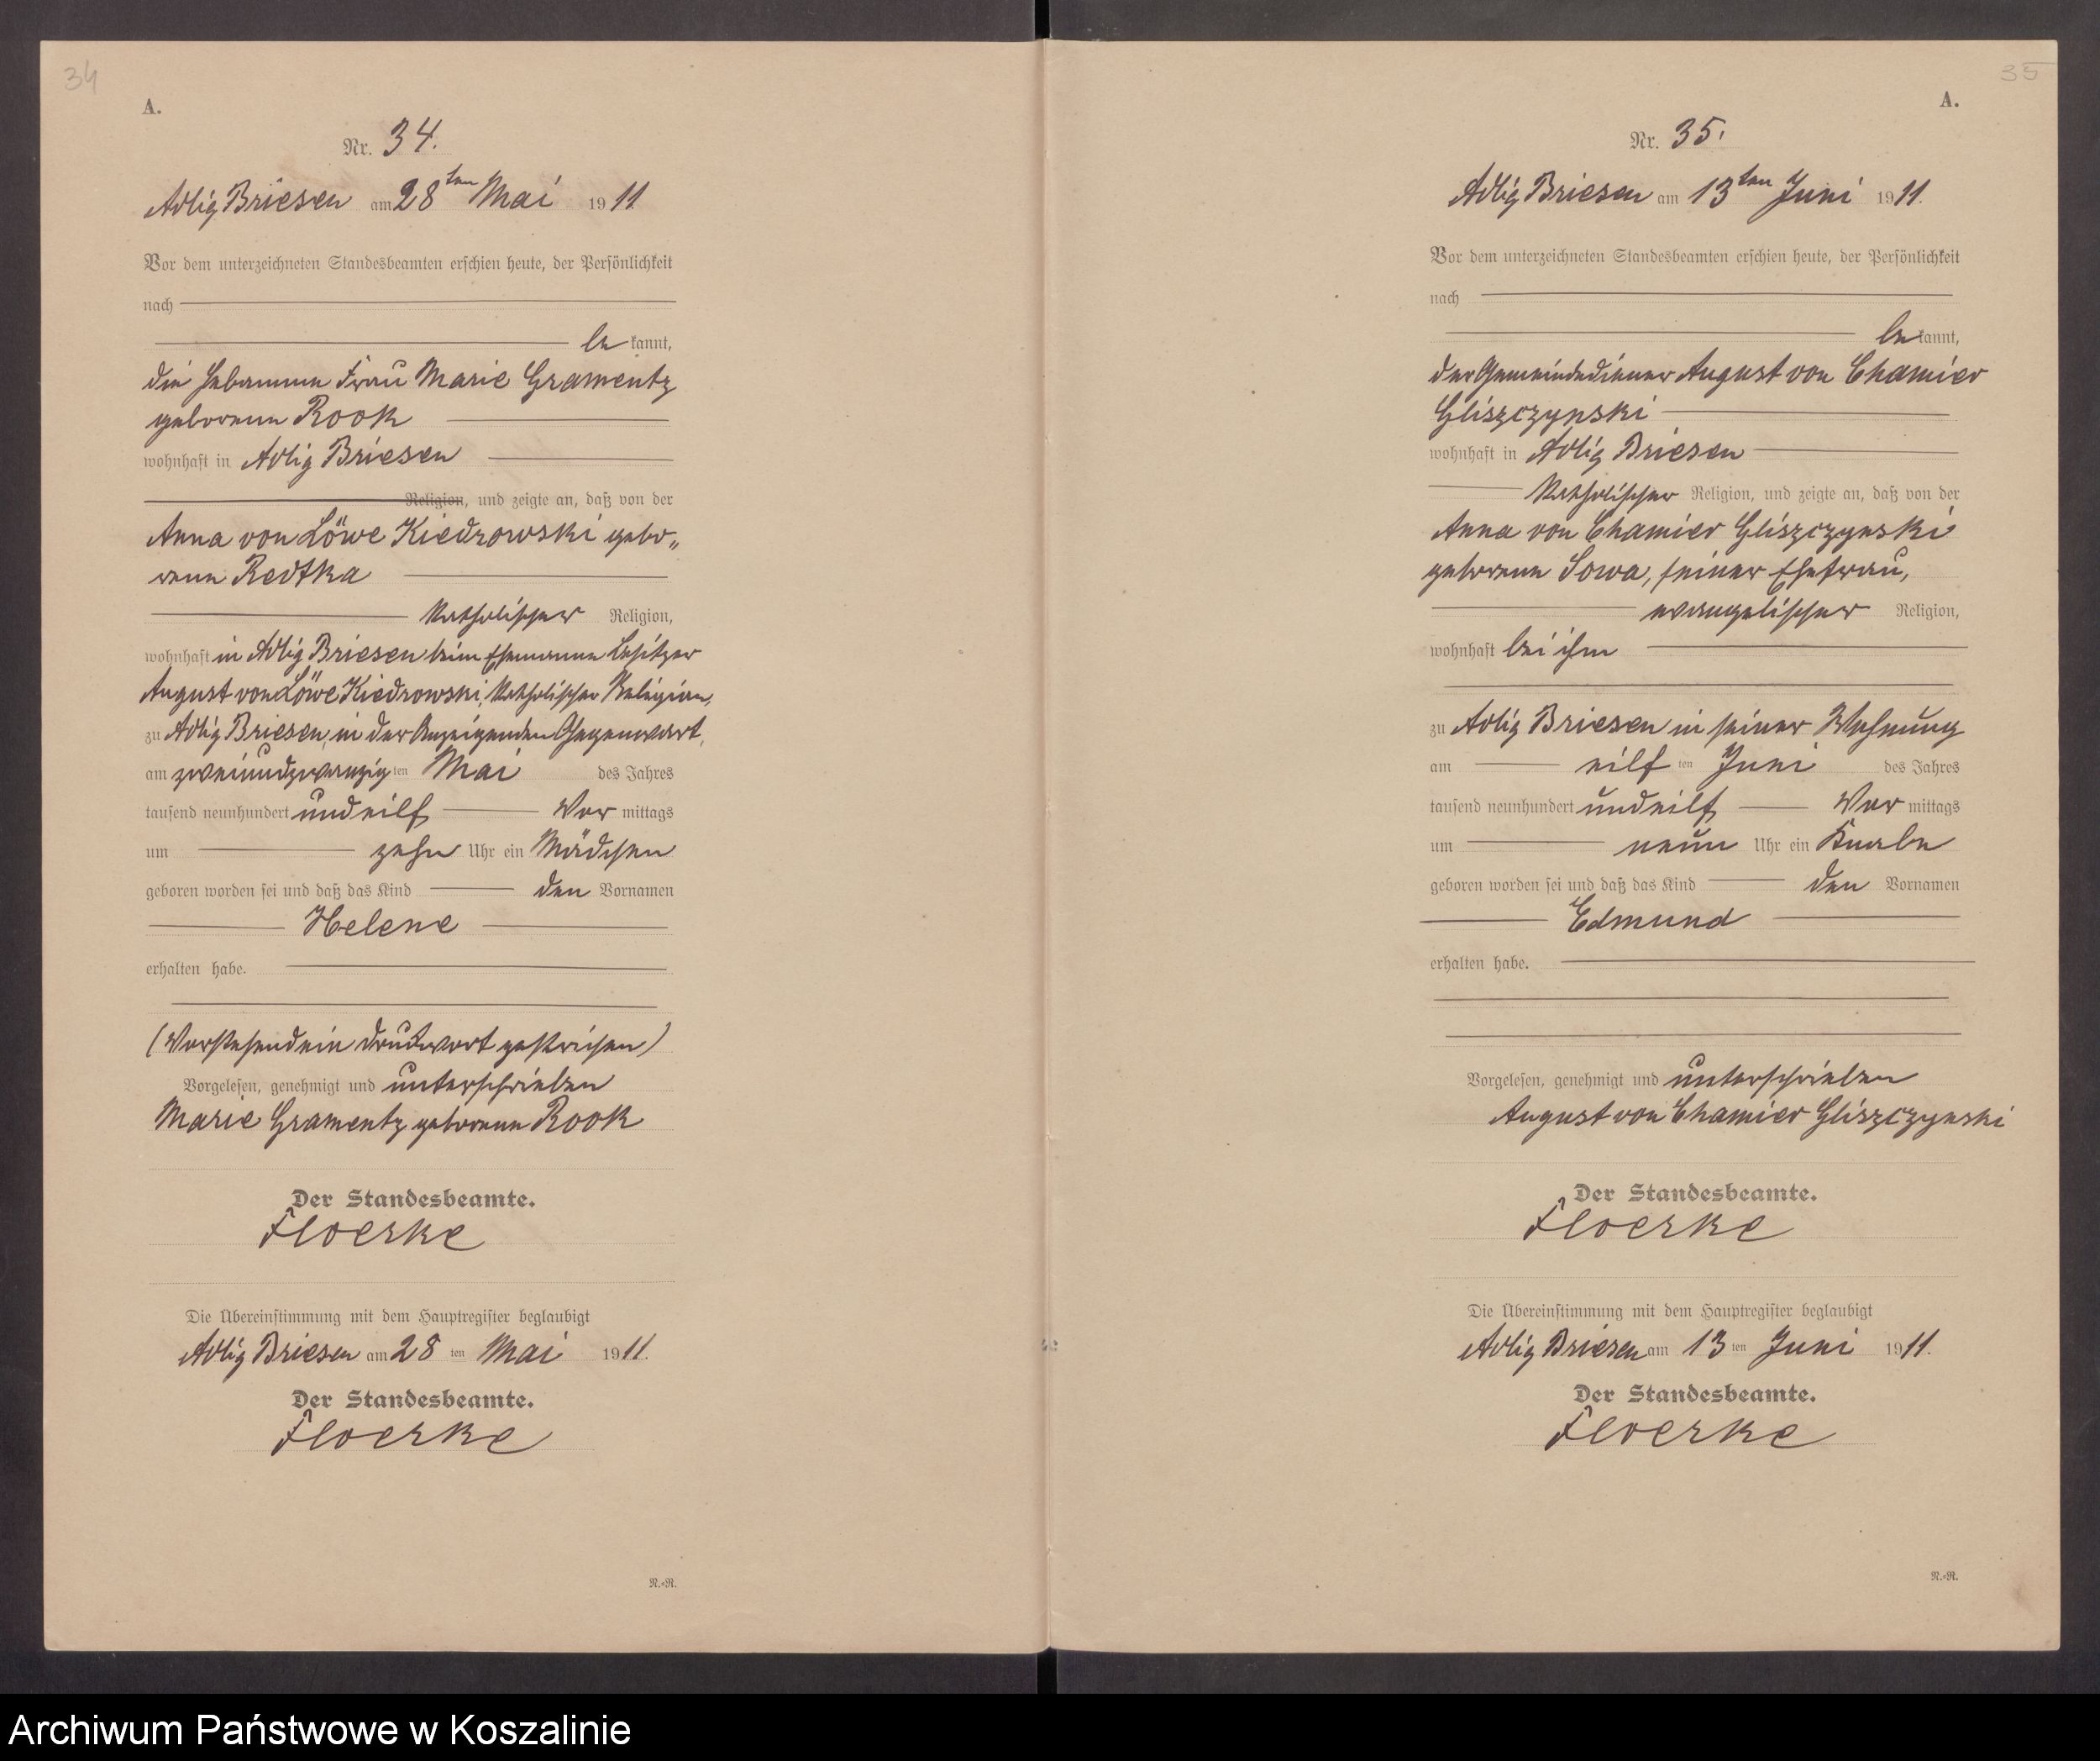 34
A.
Nr. 34.
Adlig Briesen am 28ten Mai 1911.
Vor dem unterzeichneten Standesbeamten erschien heute, der Persönlichkeit
nach
be kannt,
die Hebamme Frau Marie Gramentz
geborenen Rook
wohnhaft in Adlig Briesen
Religion, und zeigte an, daß von der
Anna von Löwe Kiedrowski gebo„
renen Redtka
katholischer Religion,
wohnhaft in Adlig Briesen beim Ehemanne Besitzer
August von Löwe Kiedrowski, katholischer Religion,
zu Adlig Briesen, in der Anzeigenden Gegenwart,
am zweiundzwanzig ten Mai des Jahres
tausend neunhundert und eilf Vor mittags
um zehn Uhr ein Mädchen
geboren worden sei und daß das Kind den Vornamen
Helene
erhalten habe.
(Vorstehend ein Druckwort gestrichen)
Vorgelesen, genehmigt und unterschrieben
Marie Gramentz geborenen Rook
Der Standesbeamte.
Floerke
Die Übereinstimmung mit dem Hauptregister beglaubigt
Adlig Briesen am 28 ten Mai 1911.
Der Standesbeamte.
Floerke
R.-R.
35
A.
Nr. 35.
Adlig Briesen am 13ten Juni 1911.
Vor dem unterzeichneten Standesbeamten erschien heute, der Persönlichkeit
nach
be kannt,
der Gemeindediener August von Chamier
Gliszczynski
wohnhaft in Adlig Briesen
katholischer Religion, und zeigte an, daß von der
Anna von Chamier Gliszczynski
geborenen Sowa, seiner Ehefrau,
evangelischer Religion,
wohnhaft bei ihm
zu Adlig Briesen in seiner Wohnung
am eilf ten Juni des Jahres
tausend neunhundert und eilf Vor mittags
um neun Uhr ein Knabe
geboren worden sei und daß das Kind den Vornamen
Edmund
erhalten habe.
Vorgelesen, genehmigt und unterschrieben
August von Chamier Gliszczynski
Der Standesbeamte.
Floerke
Die Übereinstimmung mit dem Hauptregister beglaubigt
Adlig Briesen am 13 ten Juni 1911.
Der Standesbeamte.
Floerke
R.-R.
Archiwum Państwowe w Koszalinie